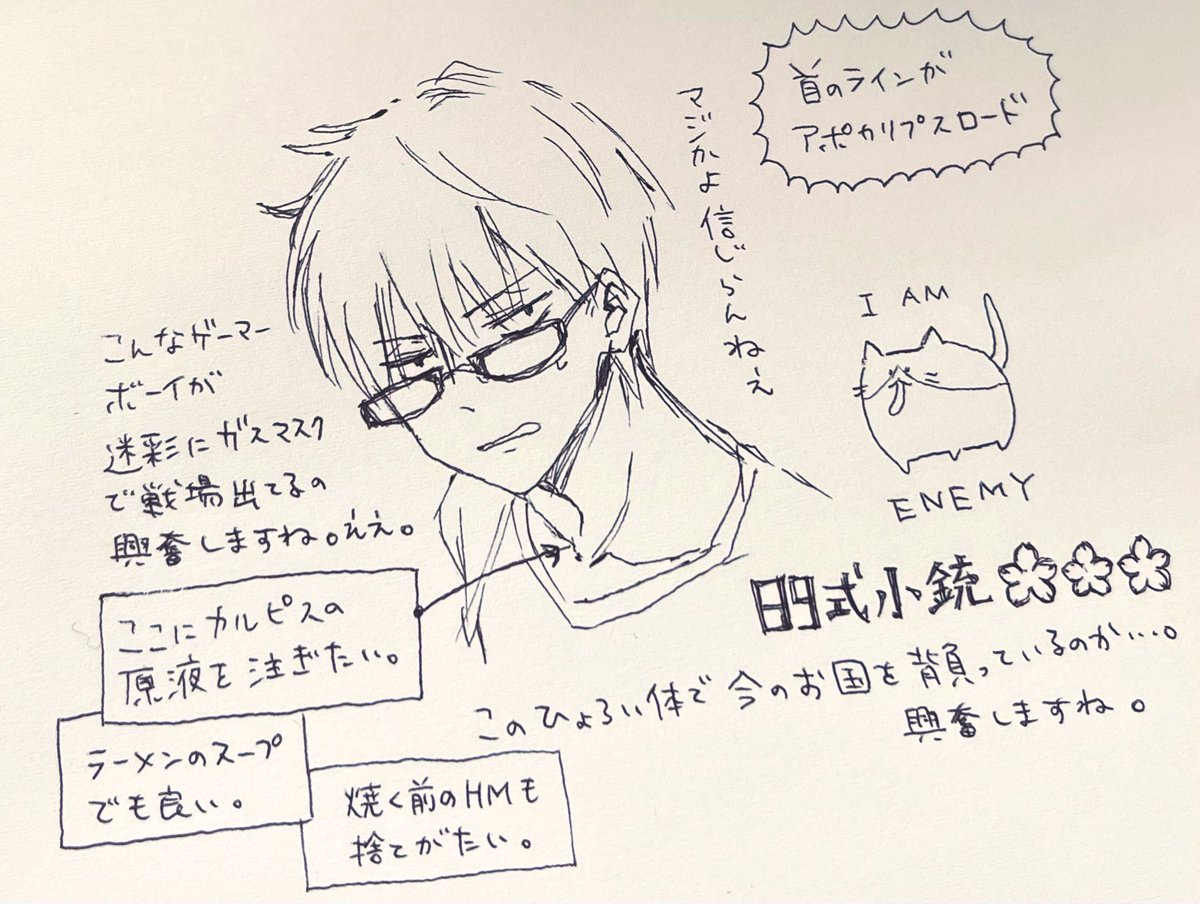 首のラインが
アポカリプスロード
マジかよ信じらんねぇ
I AM
ENEMY
こんなゲーマー
ボーイが
迷彩にガスマスク
で戦場出てるの
興奮しますね。ええ。
ここにカルピスの
原液を注ぎたい。
ラーメンのスープ
でも良い。
焼く前のHMも
捨てがたい。
89式小銃
このひょろい体で今のお国を背負っているのか…。
興奮しますね。